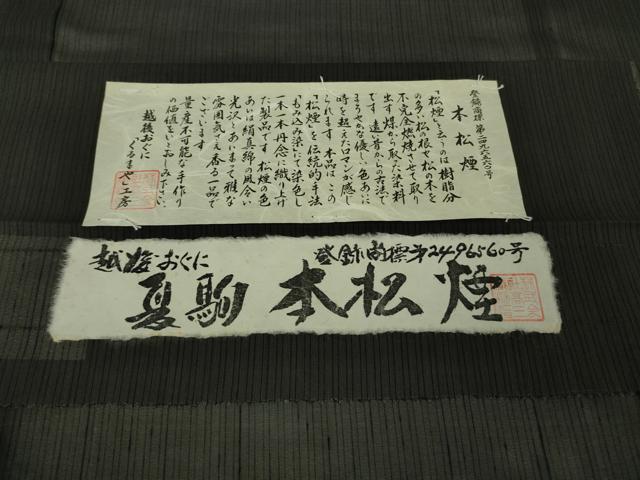 登録商標 第二四九六五六〇号
本松煙
「松煙」と云うのは樹脂分
の多い松の根や松の木を
不完全燃焼させて取り
出す煤から取った染料
です 遠い昔からの古法で
まろやかな優しい色あいに
時を超えたロマンが感じ
られます 本品は、この
「松煙」を伝統的手法
「もみ込み染」にて染色し
一本一本丹念に織り上げ
た製品です 松煙の色
あいは絹真綿の風合い
光沢とあいまって雅な
雰囲気さえ香る一品で
ございます
量産不可能な手作り
の価値をいとおしみ下さい。
越後おぐに
くるまや工房
越後おぐに
登録商標第2496560号
夏駒 本松煙